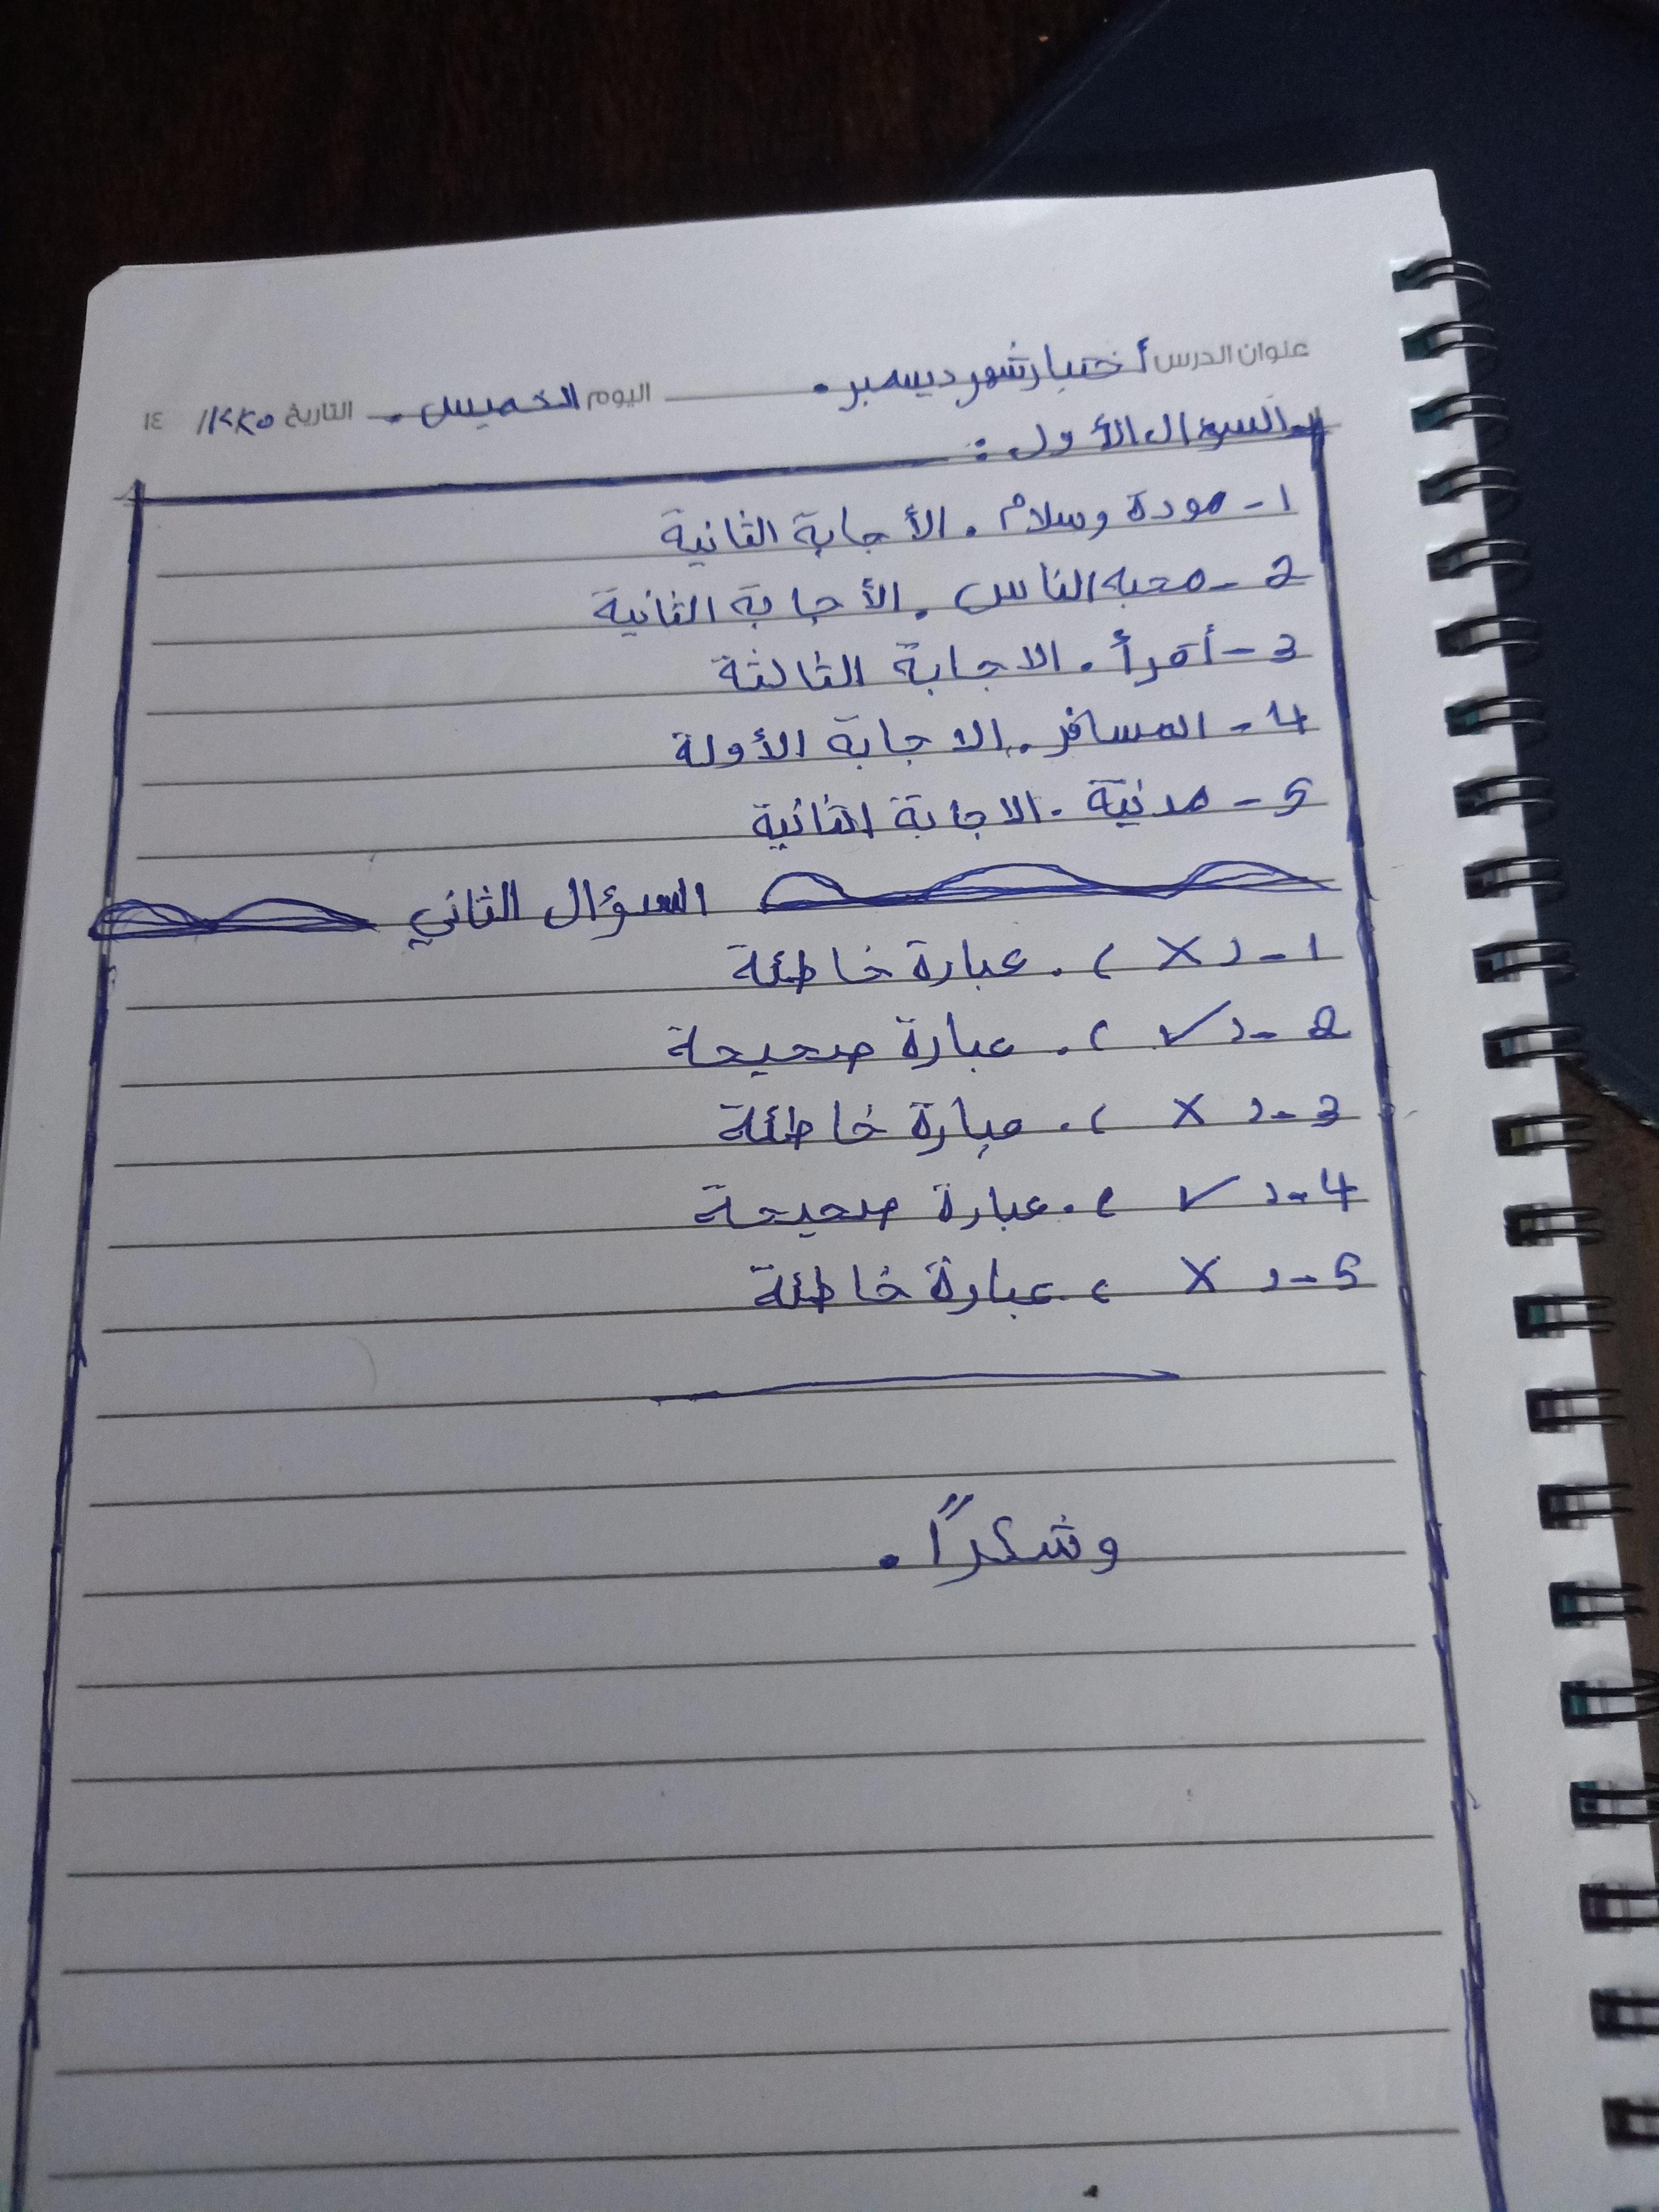 عنوان الدرس أختبار شهر ديسمبر. اليوم الخميس. التاريخ ١٤
السؤال الأول:
1- مودة وسلام. الأجابة الثانية
2- محبه الناس. الأجابة الثانية
3- أقرأ. الاجابة الثالثة
4- المسافر. الاجابة الأولة
5- مدنية. الاجابة الثانية
السؤال الثاني
1- (X). عبارة خاطئة
2- (✓). عبارة صحيحة
3- (X). عبارة خاطئة
4- (✓). عبارة صحيحة
5- (X). عبارة خاطئة
وشكرًا.